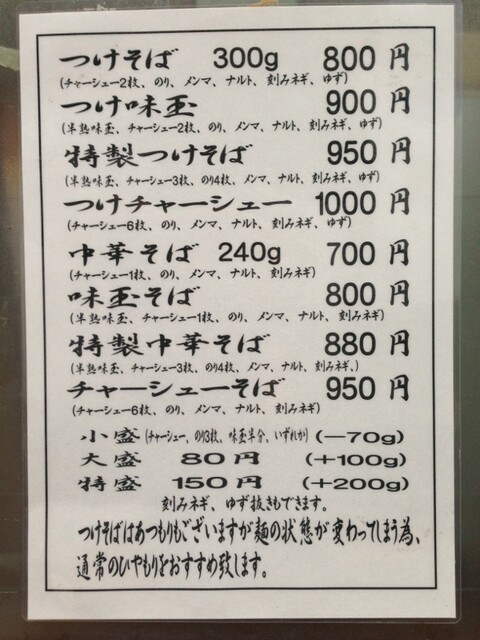 つけそば 300g 800円
(チャーシュー2枚、のり、メンマ、ナルト、刻みネギ、ゆず)
つけ味玉 900円
(半熟味玉、チャーシュー2枚、のり、メンマ、ナルト、刻みネギ、ゆず)
特製つけそば 950円
(半熟味玉、チャーシュー3枚、のり4枚、メンマ、ナルト、刻みネギ、ゆず)
つけチャーシュー 1000円
(チャーシュー6枚、のり、メンマ、ナルト、刻みネギ、ゆず)
中華そば 240g 700円
(チャーシュー1枚、のり、メンマ、ナルト、刻みネギ)
味玉そば 800円
(半熟味玉、チャーシュー1枚、のり、メンマ、ナルト、刻みネギ)
特製中華そば 880円
(半熟味玉、チャーシュー3枚、のり4枚、メンマ、ナルト、刻みネギ、)
チャーシューそば 950円
(チャーシュー6枚、のり、メンマ、ナルト、刻みネギ)
小盛(チャーシュー、のり3枚、味玉半分、いずれか)(−70g)
大盛 80円 (+100g)
特盛 150円 (+200g)
刻みネギ、ゆず抜きもできます。
つけそばはあつもりもございますが麺の状態が変わってしまう為、
通常のひやもりをおすすめ致します。